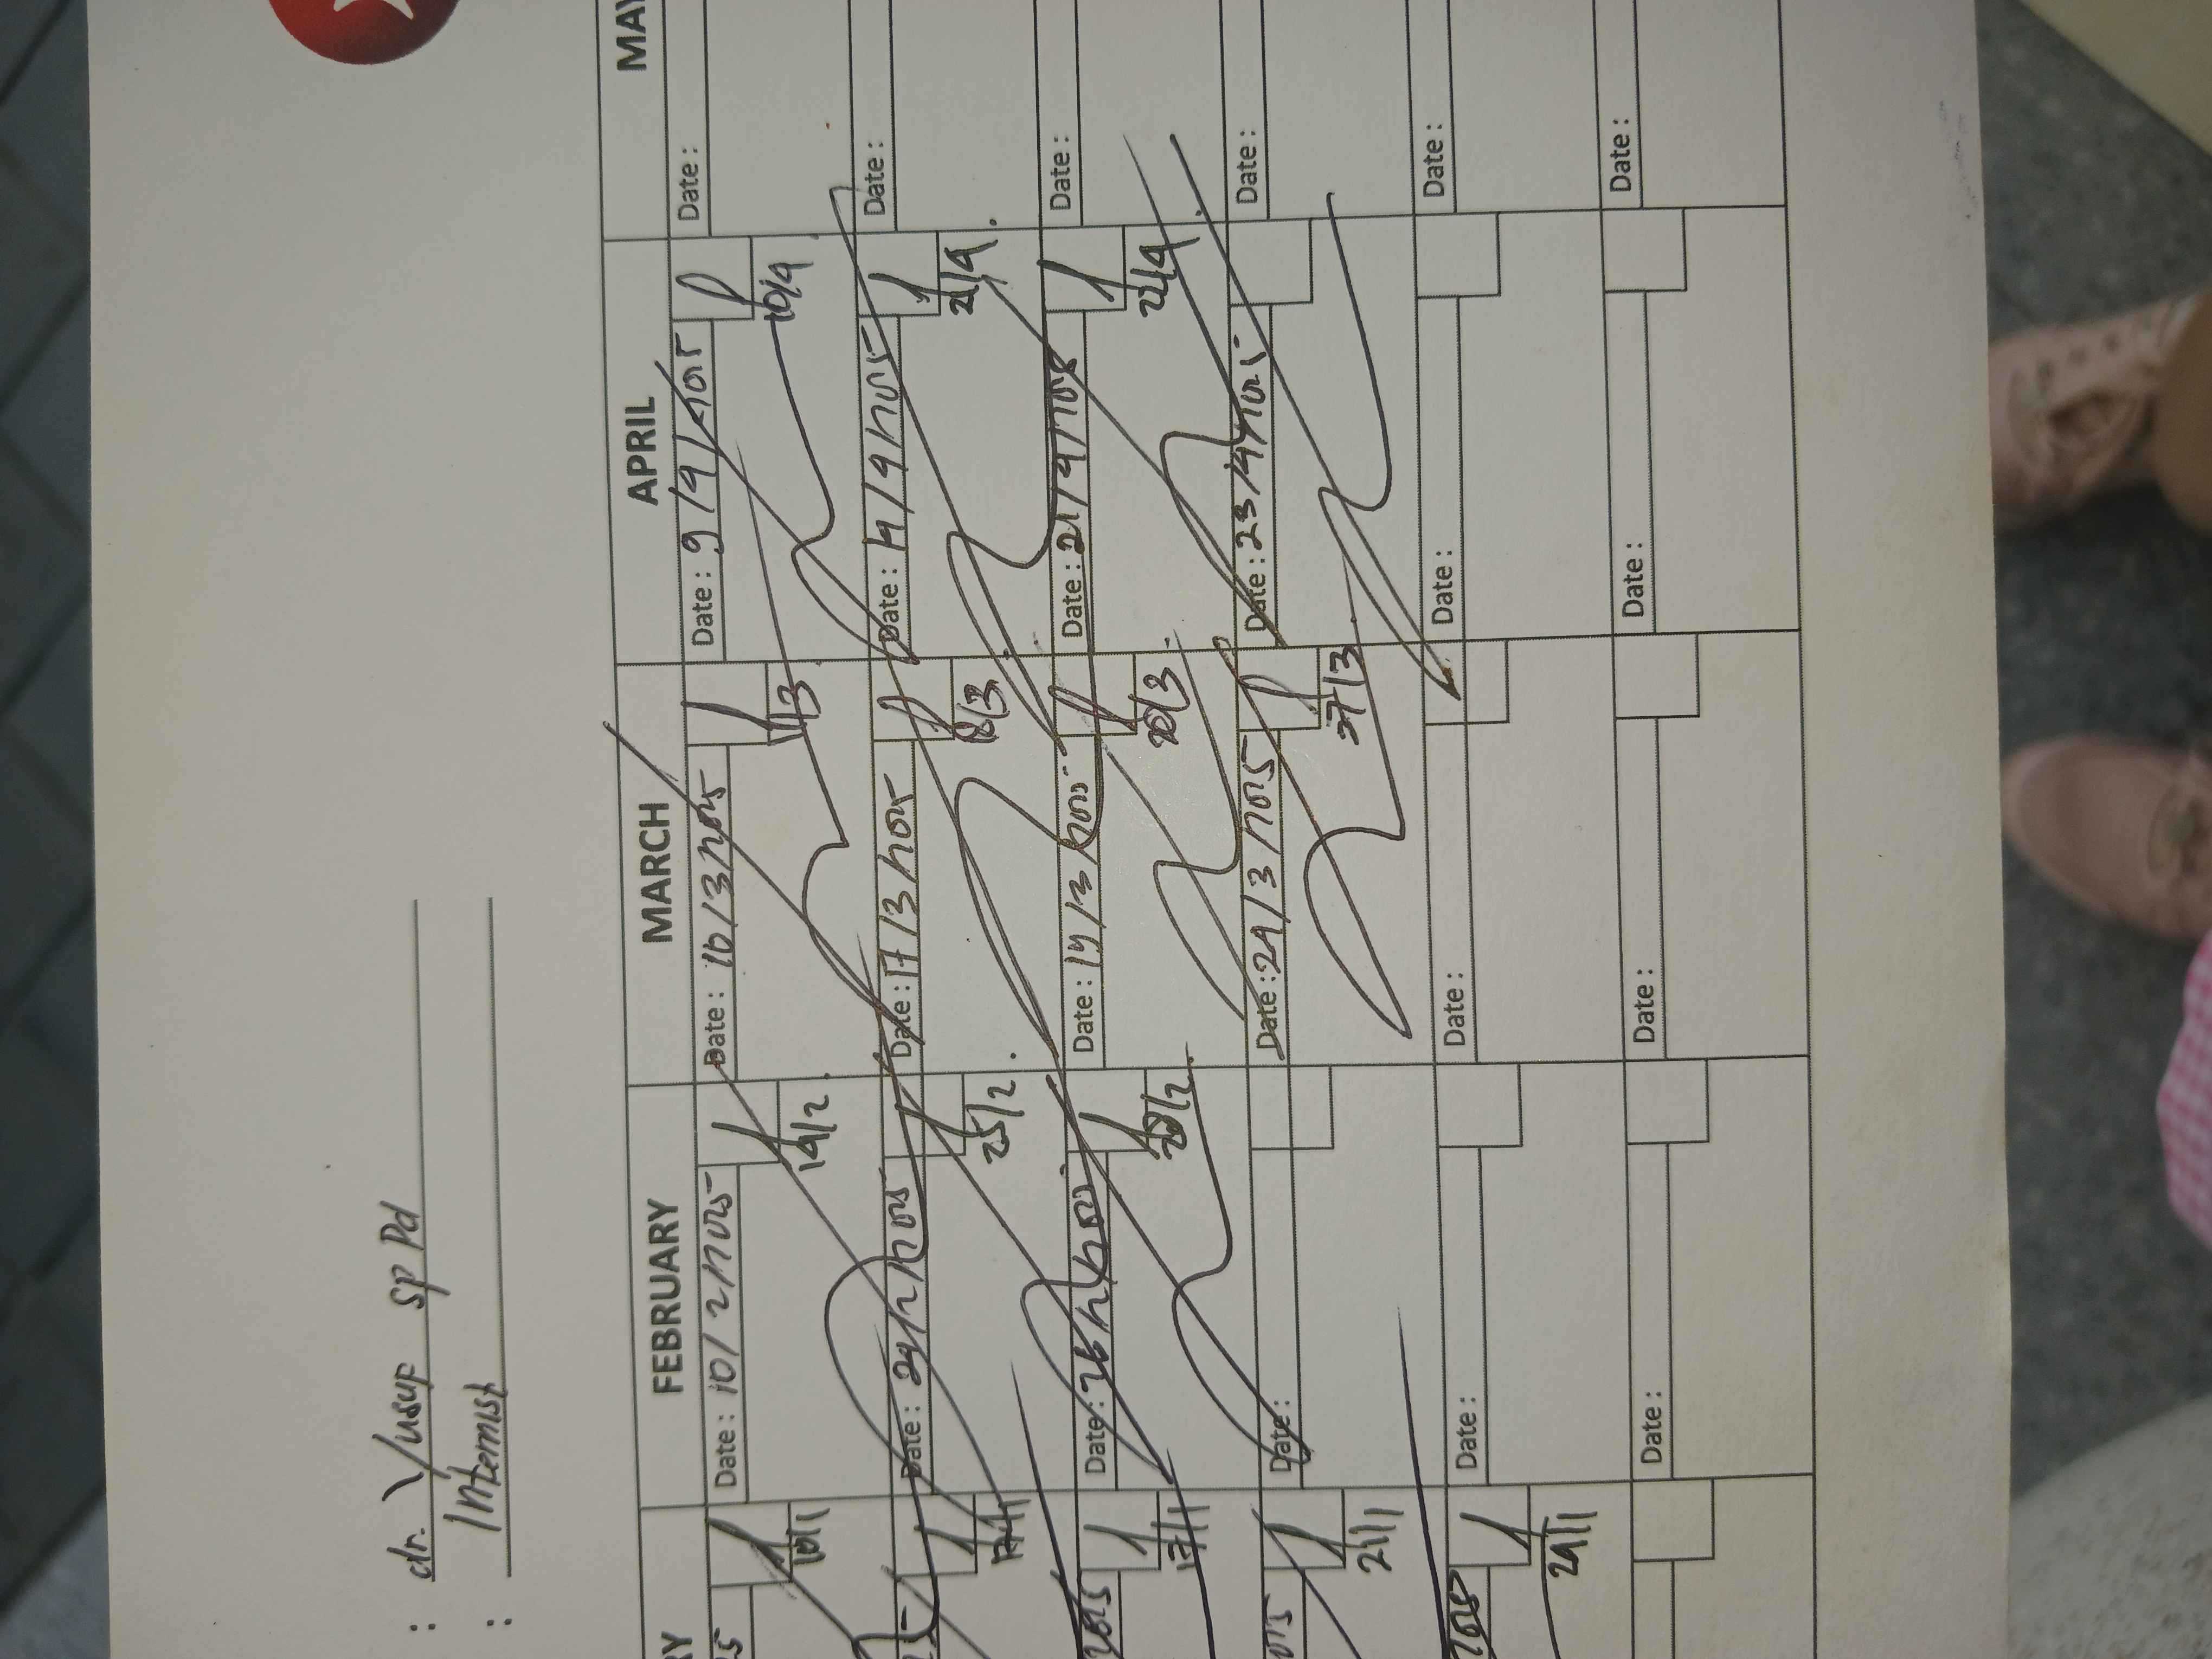 : dr. Yusup Sp Pd
: Internist
FEBRUARY MARCH APRIL
Date : 10/2/2025 Date : 10/3/2025 Date : 9/4/2025 Date :
10/1 14/2 11/3 10/4
Date : 24/2/2025 Date : 17/3/2025 Date : Date :
17/1 25/2 18/3 21/4
2025 Date : 26/2/2025 Date : 19/3/2025 Date : 21/4/2025 Date :
17/1 28/2 20/3 22/4
Date : Date : 24/3/2025 Date : 23/4/2025 Date :
21/1 27/3
2025 Date : Date : Date : Date :
24/1
Date : Date : Date : Date :